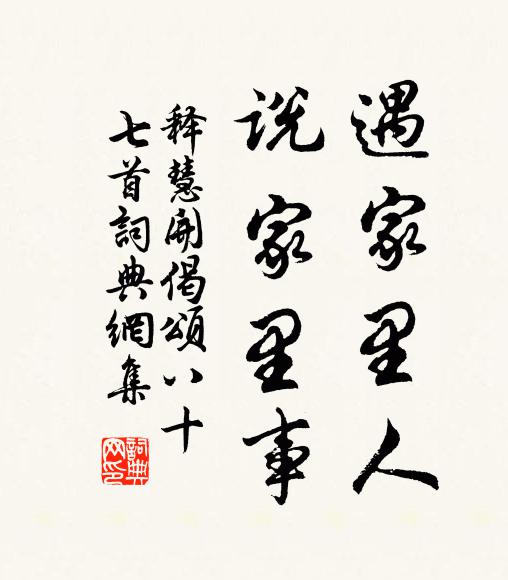 遇家里人
说家里事
释慧開偈頌八十
七首詞典網集
詞典网印